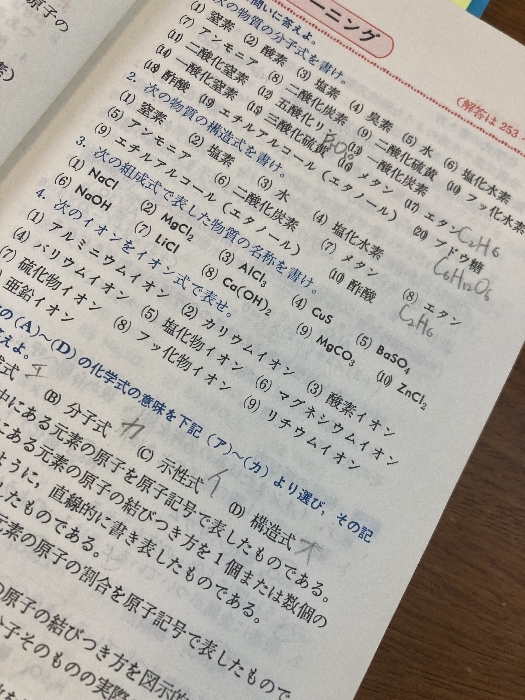 ーニング
問いに答えよ。
(解答は 253
次の物質の分子式を書け。
(1) 窒素 (2) 酸素 (3) 塩素 (4) 臭素 (5) 水 (6) 塩化水素
(7) アンモニア (8) 二酸化炭素 (9) 二酸化硫黄 (10) フッ化水素
(11) 二酸化窒素 (12) 五酸化リ 一酸化炭素
(14) 一酸化窒素 (15) 三酸化硫黄 (16) メタン (17) エタン C2H6
(18) 酢酸 (19) エチルアルコール (エタノール) (20) ブドウ糖
C6H12O6
2. 次の物質の構造式を書け。
(1) 窒素 (2) 塩素 (3) 水 (4) 塩化水素
(5) アンモニア (6) 二酸化炭素 (7) メタン (8) エタン
C2H6
(9) エチルアルコール (エタノール) (10) 酢酸
3. 次の組成式で表した物質の名称を書け。
(1) NaCl (2) MgCl2 (3) AlCl3 (4) CuS (5) BaSO4
(6) NaOH (7) LiCl (8) Ca(OH)2 (9) MgCO3 (10) ZnCl2
4. 次のイオンをイオン式で表せ。
(1) アルミニウムイオン (2) カリウムイオン (3) 酸素イオン
(4) バリウムイオン (5) 塩化物イオン (6) マグネシウムイオン
(7) 硫化物イオン (8) フッ化物イオン (9) リチウムイオン
亜鉛イオン
の(A)~(D)の化学式の意味を下記(ア)~(カ)より選び, その記
答えよ。
式 エ (B) 分子式 カ (C) 示性式 イ (D) 構造式 オ
中にある元素の原子を原子記号で表したものである。
にある元素の原子の結びつき方を1個または数個の
ように, 直線的に書き表したものである。
したものである。
元素の原子の割合を原子記号で表したもので
の原子の結びつき方を図示的
分子そのものの実際